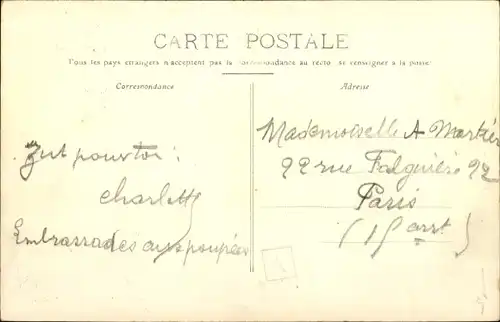 CARTE POSTALE
Tous les pays étrangers n'acceptent pas la correspondance au recto, se renseigner à la poste
Correspondance
Adresse
Zut pour toi :
Charlotte
Embrassades aux poupées
Mademoiselle A
22 rue Falguière 22
Paris
(arrt)